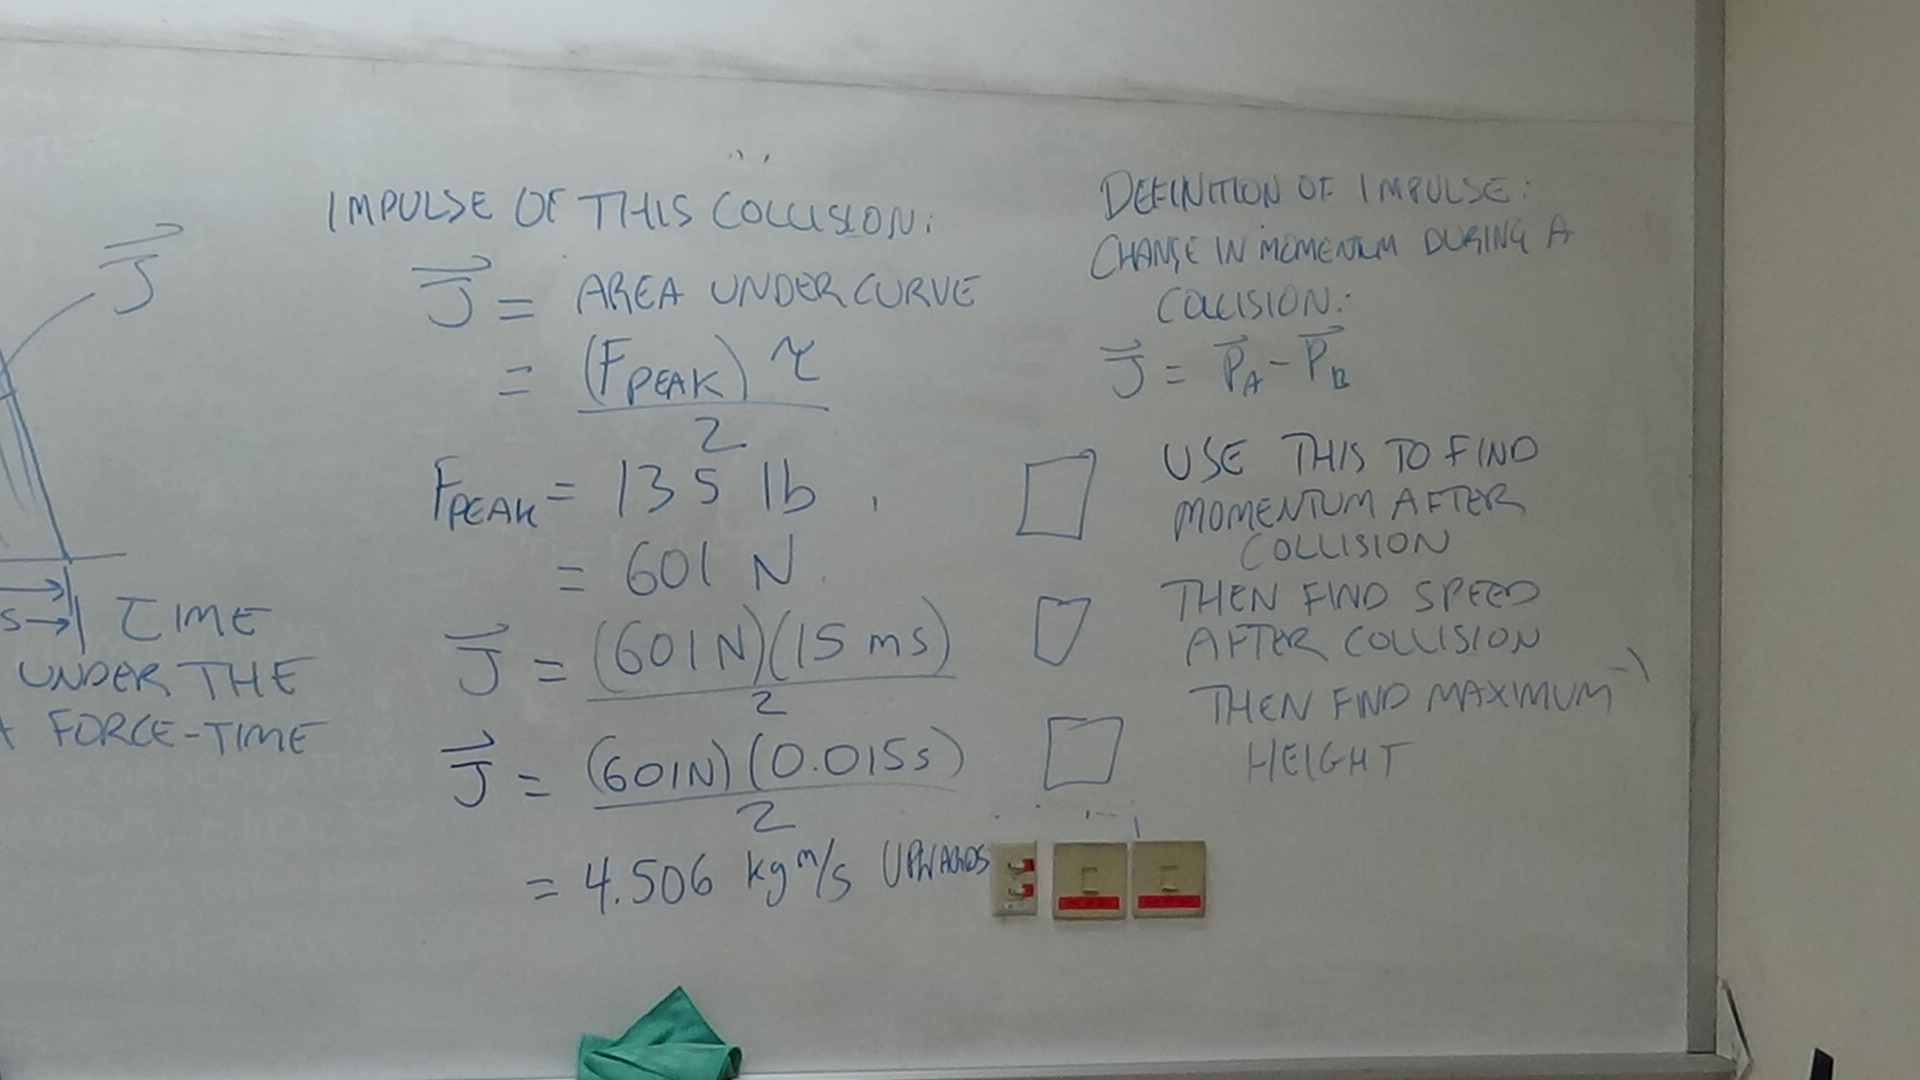 J
S→ TIME
UNDER THE
FORCE-TIME
IMPULSE OF THIS COLLISION:
J = AREA UNDER CURVE
= (FPEAK) τ
2
FPEAK = 135 lb
= 601 N
J = (601N)(15 ms)
2
J = (601N)(0.015s)
2
= 4.506 kg m/s UPWARDS
DEFINITION OF IMPULSE:
CHANGE IN MOMENTUM DURING A
COLLISION:
J = PA - PB
USE THIS TO FIND
MOMENTUM AFTER
COLLISION
THEN FIND SPEED
AFTER COLLISION
THEN FIND MAXIMUM
HEIGHT